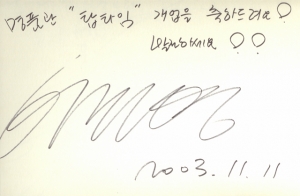 명품관 "탑타임" 개업을 축하드려요!
번창하세요!!
2003.11.11